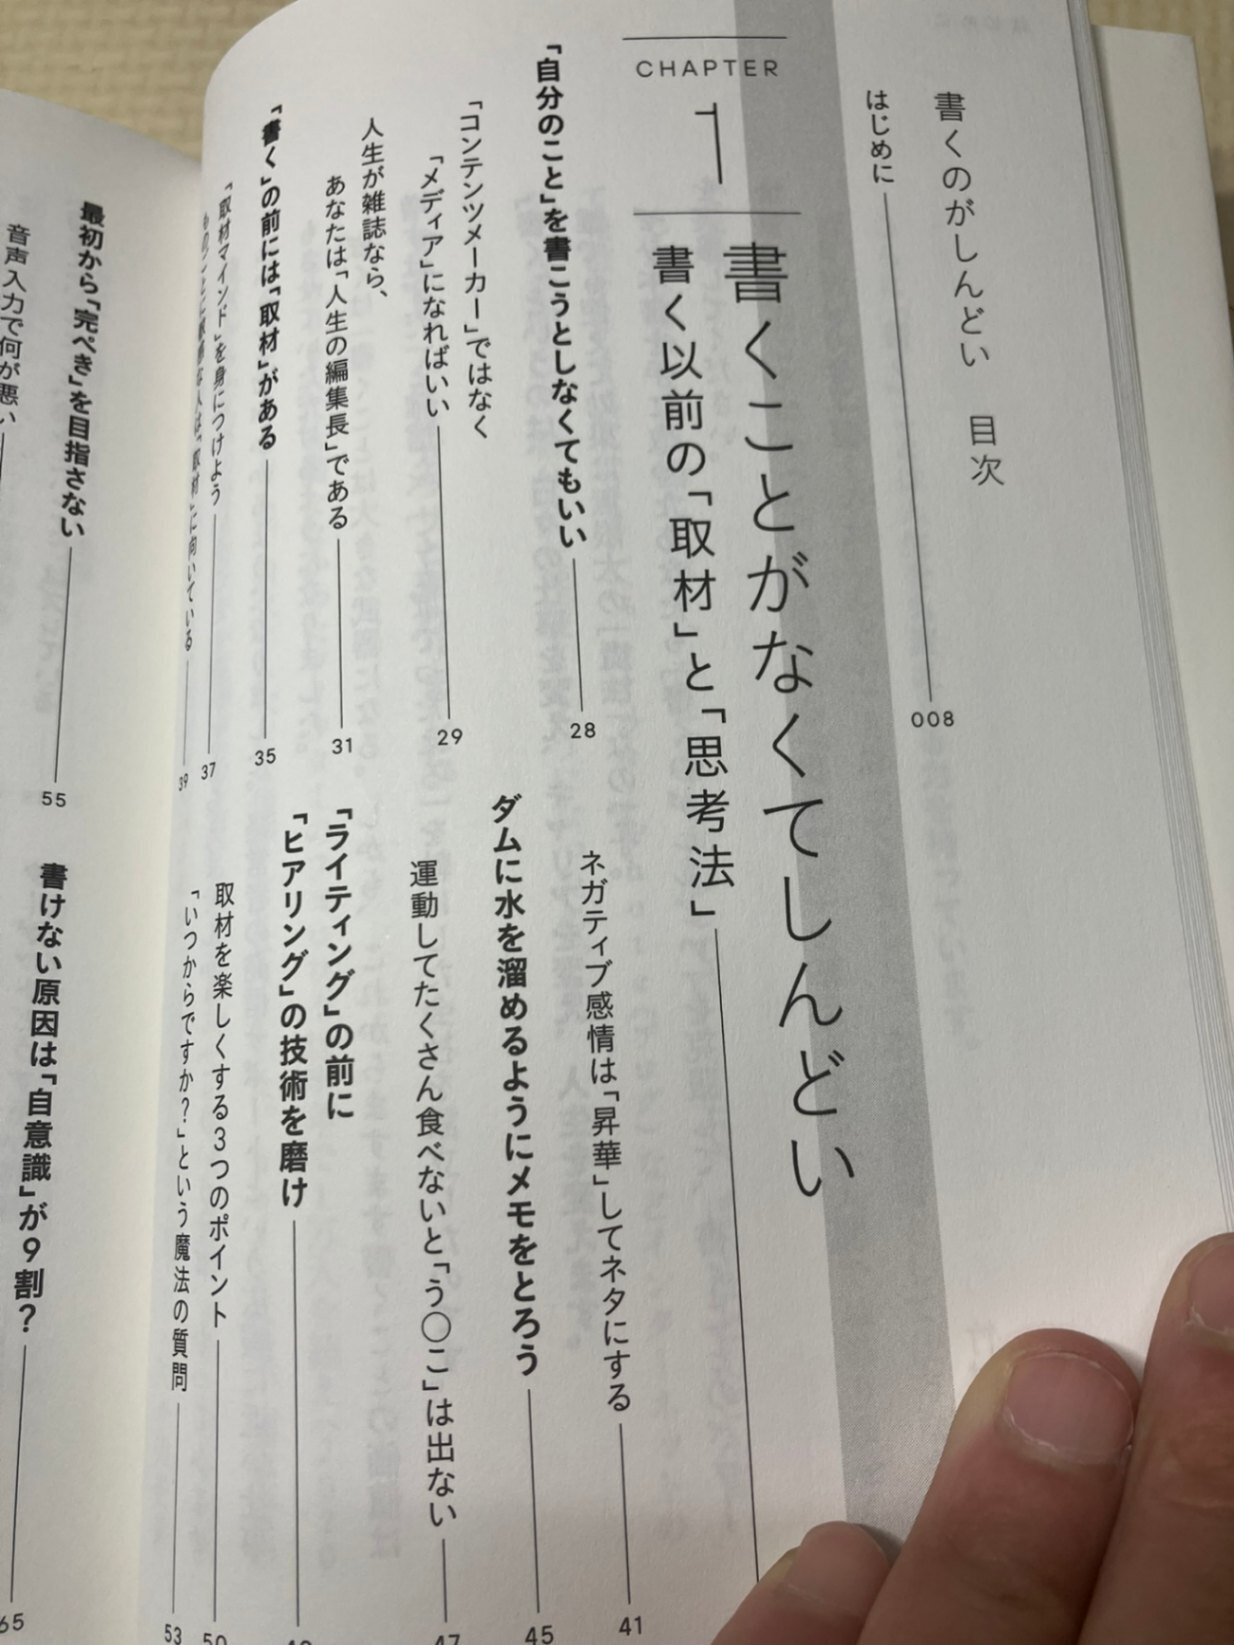 書くのがしんどい 目次
はじめに 008
CHAPTER
1
書くことがなくてしんどい
書く以前の「取材」と「思考法」
「自分のこと」を書こうとしなくてもいい 28
「コンテンツメーカー」ではなく
「メディア」になればいい 29
人生が雑誌なら、
あなたは「人生の編集長」である 31
「書く」の前には「取材」がある 35
「取材マインド」を身につけよう 37
人は「取材」に向いている 39
ネガティブ感情は「昇華」してネタにする 41
ダムに水を溜めるようにメモをとろう 45
運動してたくさん食べないと「う〇こ」は出ない 47
「ライティング」の前に
「ヒアリング」の技術を磨け
取材を楽しくする3つのポイント 50
「いつからですか?」という魔法の質問 53
最初から「完ぺき」を目指さない 55
音声入力で何が悪い
書けない原因は「自意識」が9割? 65